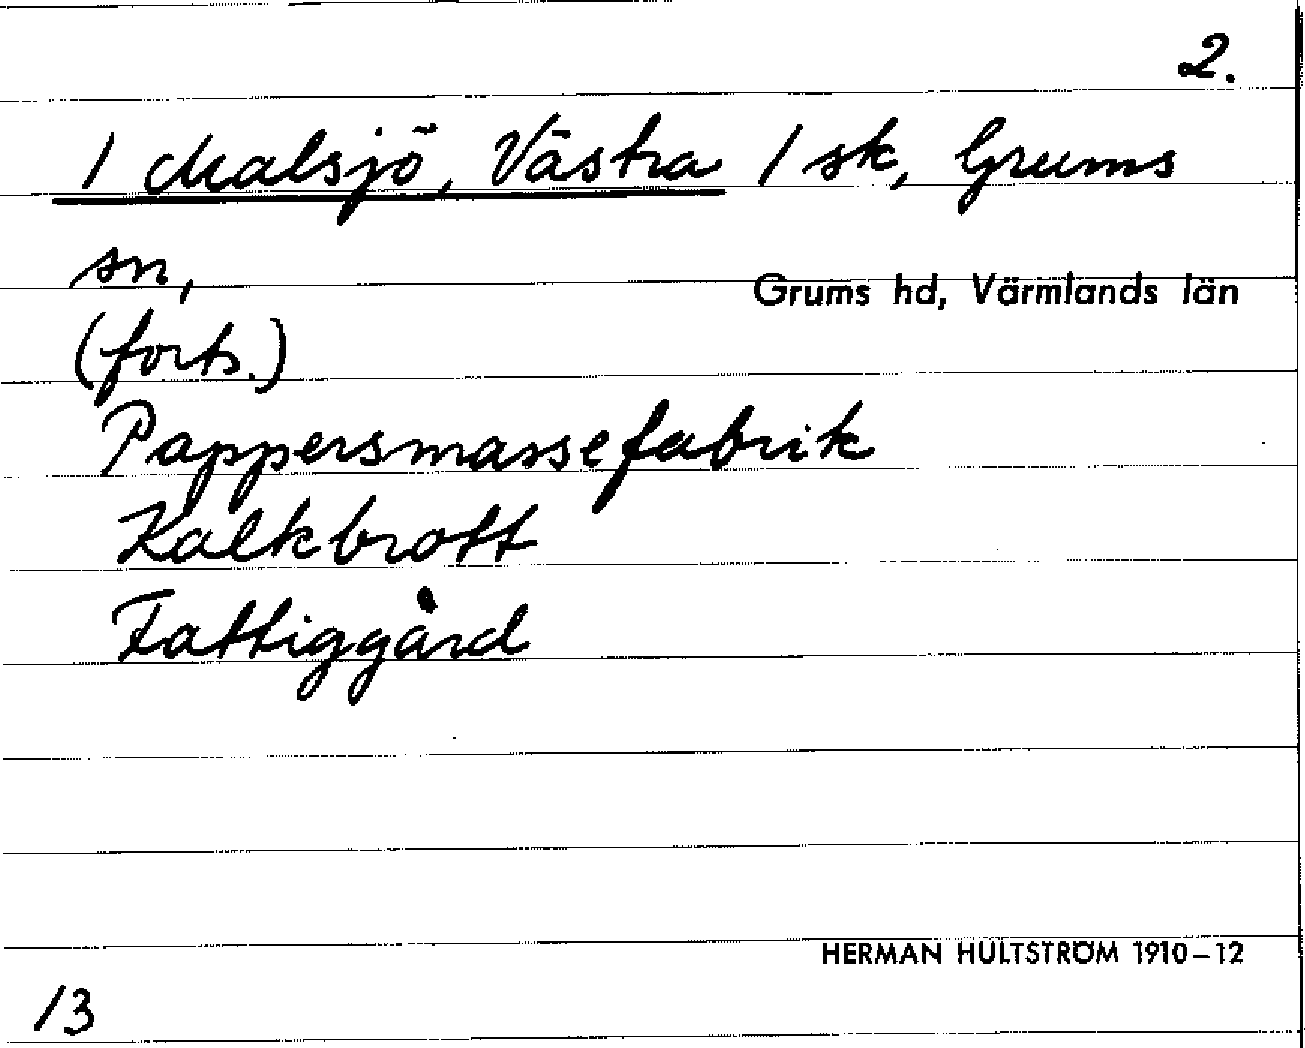 2.
/ Malsjö, Västra / sk, Grums
sn,
Grums hd, Värmlands län
(forts.)
Pappersmassefabrik
Kalkbrott
Fattiggård
HERMAN HULTSTRÖM 1910–12
/3